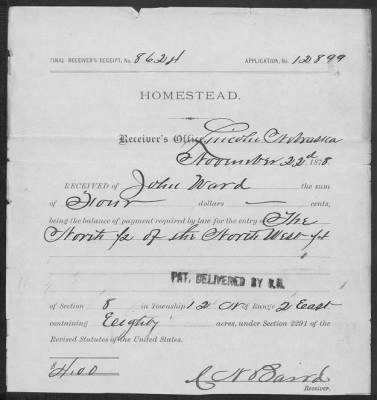 FINAL RECEIVER'S RECEIPT, No. 8624 APPLICATION, No. 12899
HOMESTEAD.
Receiver's Office, Lincoln Nebraska
November 22d 1878
RECEIVED of John Ward the sum
of Four dollars — cents,
being the balance of payment required by law for the entry of The
North ½ of the North West ¼
PAT. DELIVERED BY
of Section 8 in Township 12 N of Range 2 East
containing Eeighty acres, under Section 2291 of the
Revised Statutes of the United States.
$4.00
C N Baird
Receiver.